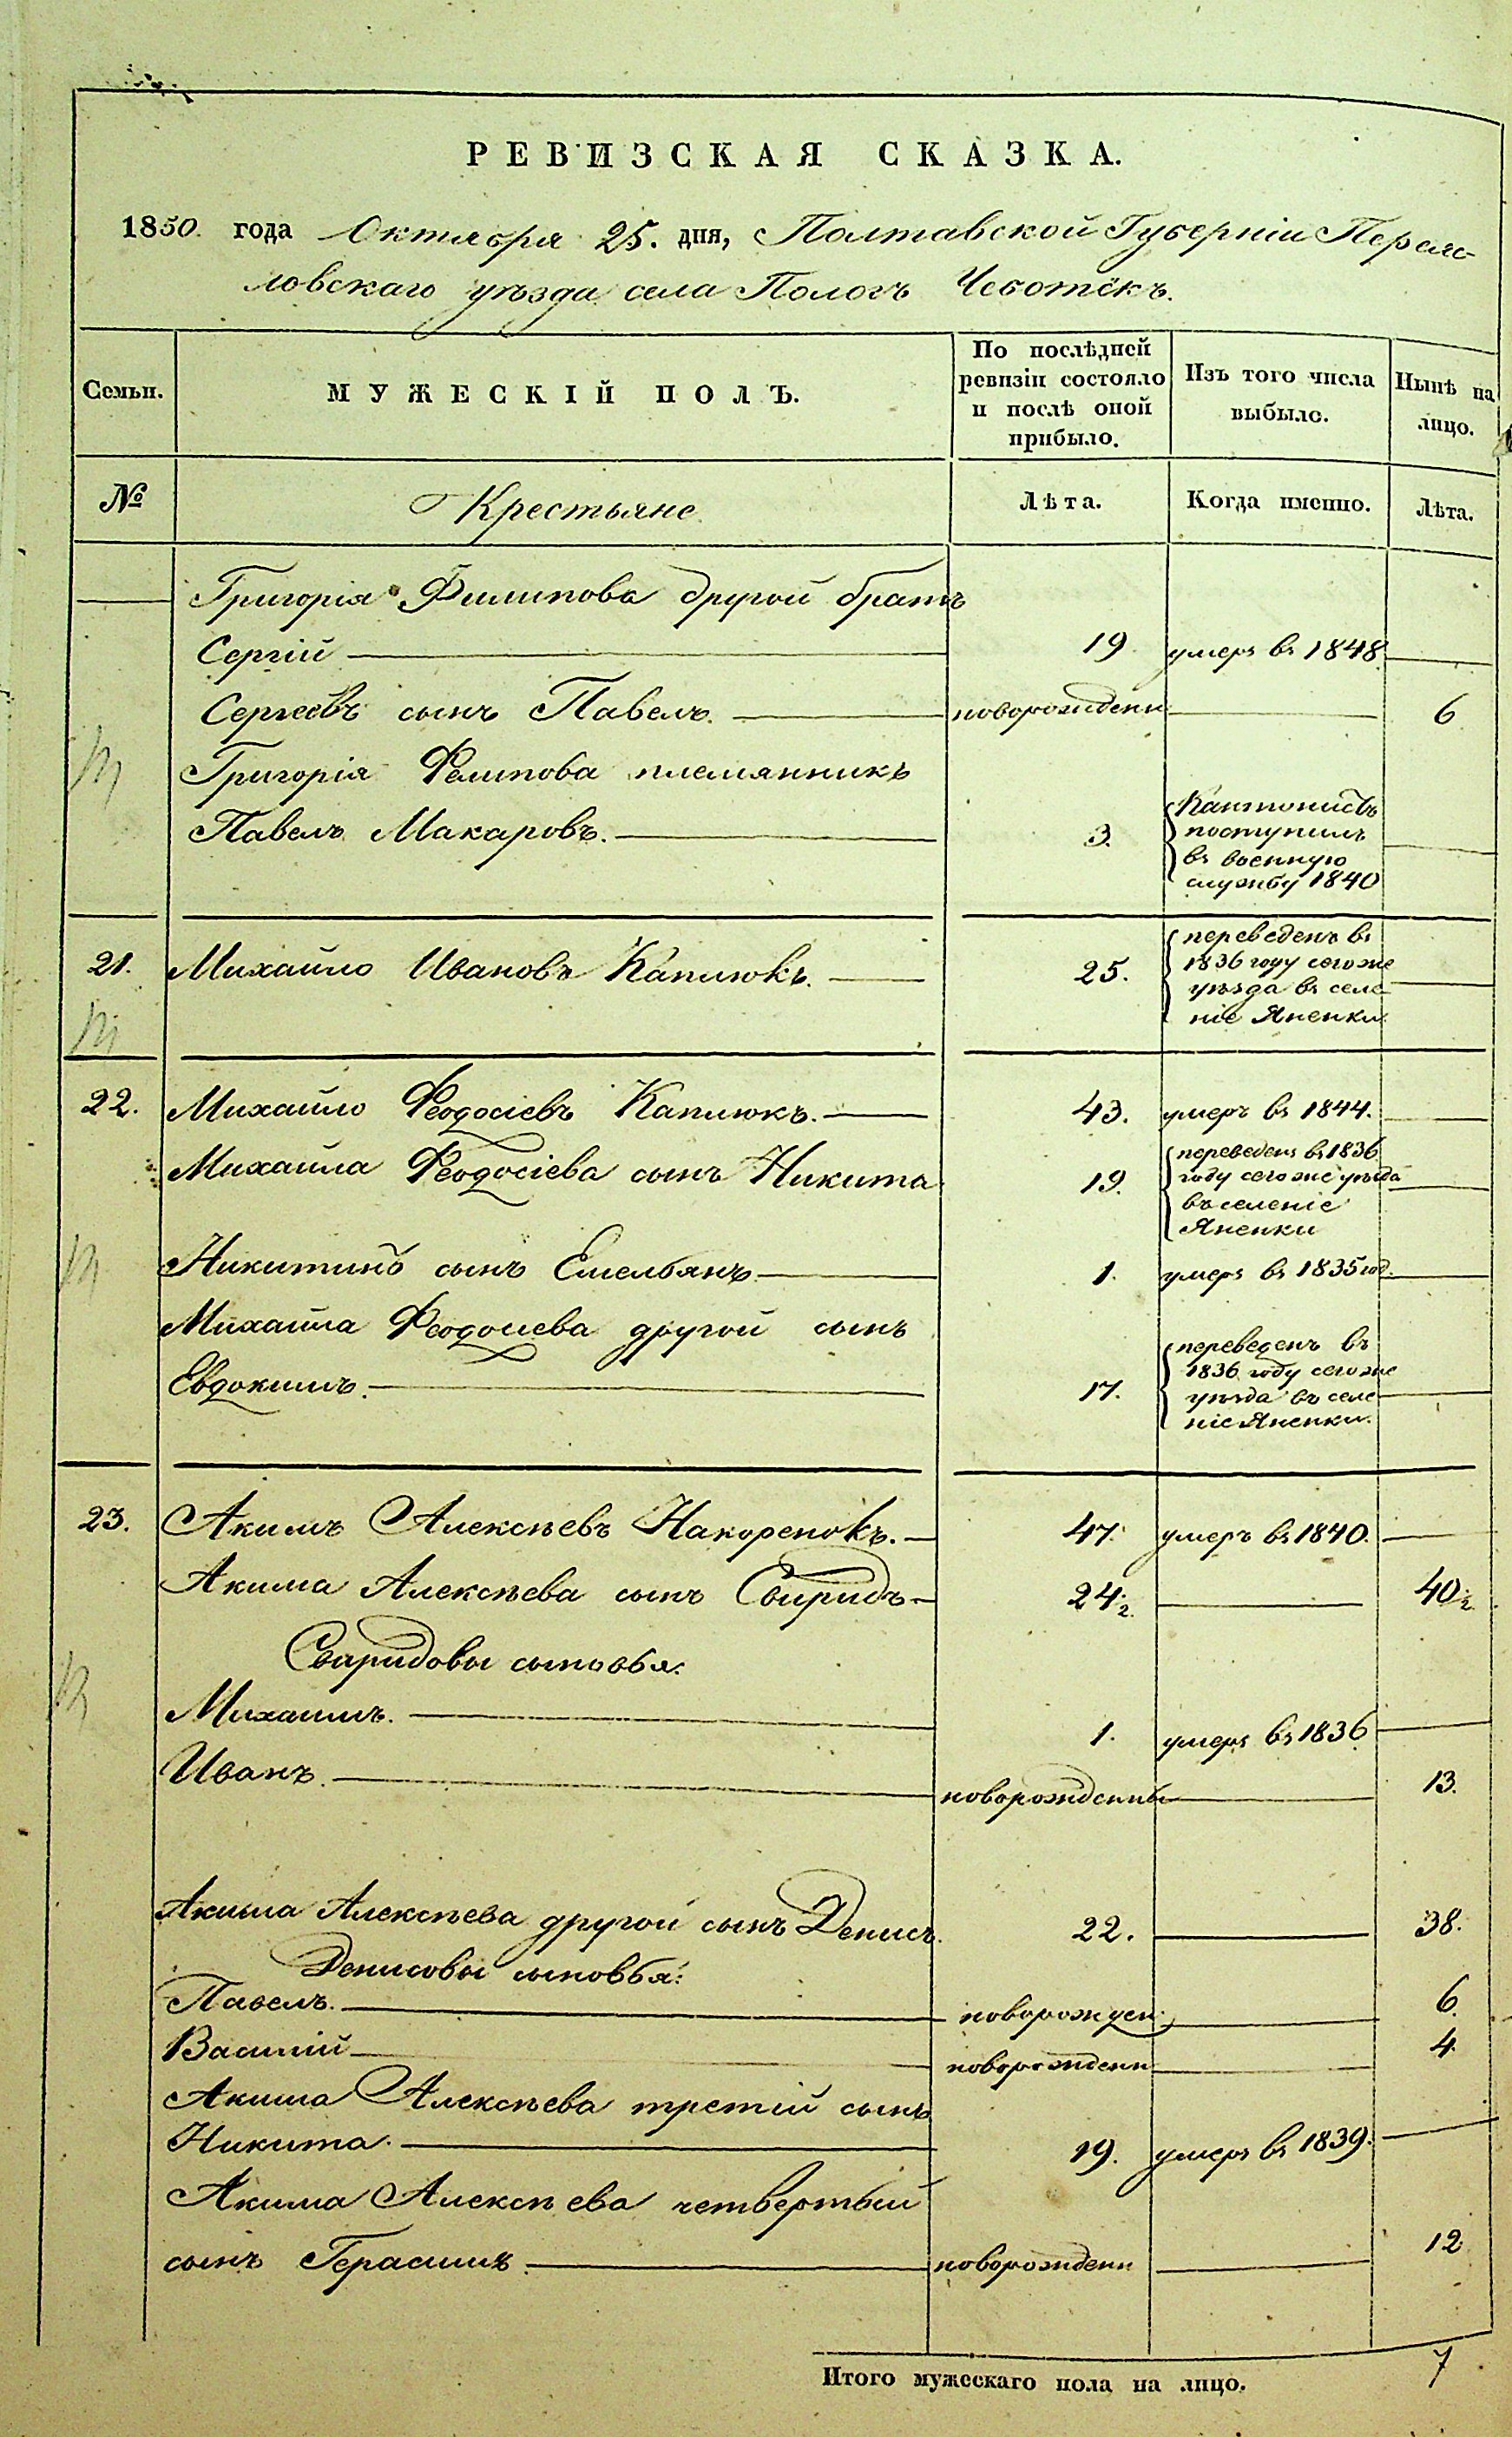 РЕВИЗСКАЯ СКАЗКА.
1850. года Октября 25. дня, Полтавской Губерніи Переяс-
ловскаго уѣзда села Пологъ Чеботёкъ.
Семьи.
МУЖЕСКІЙ ПОЛЪ.
По послѣдней
ревизіи состояло
и послѣ оной
прибыло.
Изъ того числа
выбыло.
Нынѣ на
лицо.
№
Крестьяне
Лѣта.
Когда именно.
Лѣта.
Григорія Филипова другой братъ
Сергій 19. умеръ въ 1848
Сергѣевъ сынъ Павелъ. новорожденн 6
Григорія Филипова племянникъ
Павелъ Макаровъ. 3. Кантонистъ
поступилъ
въ военную
службу 1840
21. Михайло Ивановъ Каплюкъ. 25. переведенъ въ
1836 году сегоже
уѣзда въ селе
ніе Яненки.
22. Михайло Феодосіевъ Каплюкъ. 43. умеръ въ 1844.
Михайла Феодосіева сынъ Никита 19. переведенъ въ 1836
году сегоже уѣзда
въ селеніе
Яненки
Никитинъ сынъ Емельянъ 1. умеръ въ 1835 год.
Михайла Феодосіева другой сынъ
Евдокимъ. 17. переведенъ въ
1836 году сегоже
уѣзда въ селе
ніе Яненки.
23. Акимъ Алексѣевъ Накоренокъ. 47. умеръ въ 1840.
Акима Алексѣева сынъ Свиридъ 24½. 40½
Свиридовы сыновья:
Михаилъ. 1. умеръ въ 1836
Иванъ. новорожденны 13.
Акима Алексѣева другой сынъ Денисъ. 22. 38.
Денисовы сыновья:
Павелъ. новорожден: 6.
Василій новорожденн 4.
Акима Алексѣева третій сынъ
Никита. 19. умеръ въ 1839.
Акима Алексѣева четвертый
сынъ Герасимъ. новорожденн 12
Итого мужескаго пола на лицо. 7